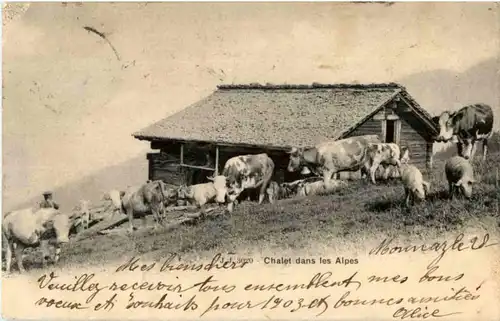 J.J. 3029 Chalet dans les Alpes
Mes bien chers
Veuillez recevoir tous ensemble mes bons
voeux et souhaits pour 1903 et bonnes amitiés
Alice